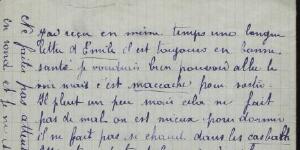 J'ai reçu en même temps une longue
lettre d'Emile il est toujours en bonne
santé je voudrais bien pouvoir aller le
voir mais c'est maccache pour sortir
Il pleut un peu mais cela ne fait
pas de mal on est mieux pour dormir
il ne fait pas si chaud dans les casbah
Ne faites pas